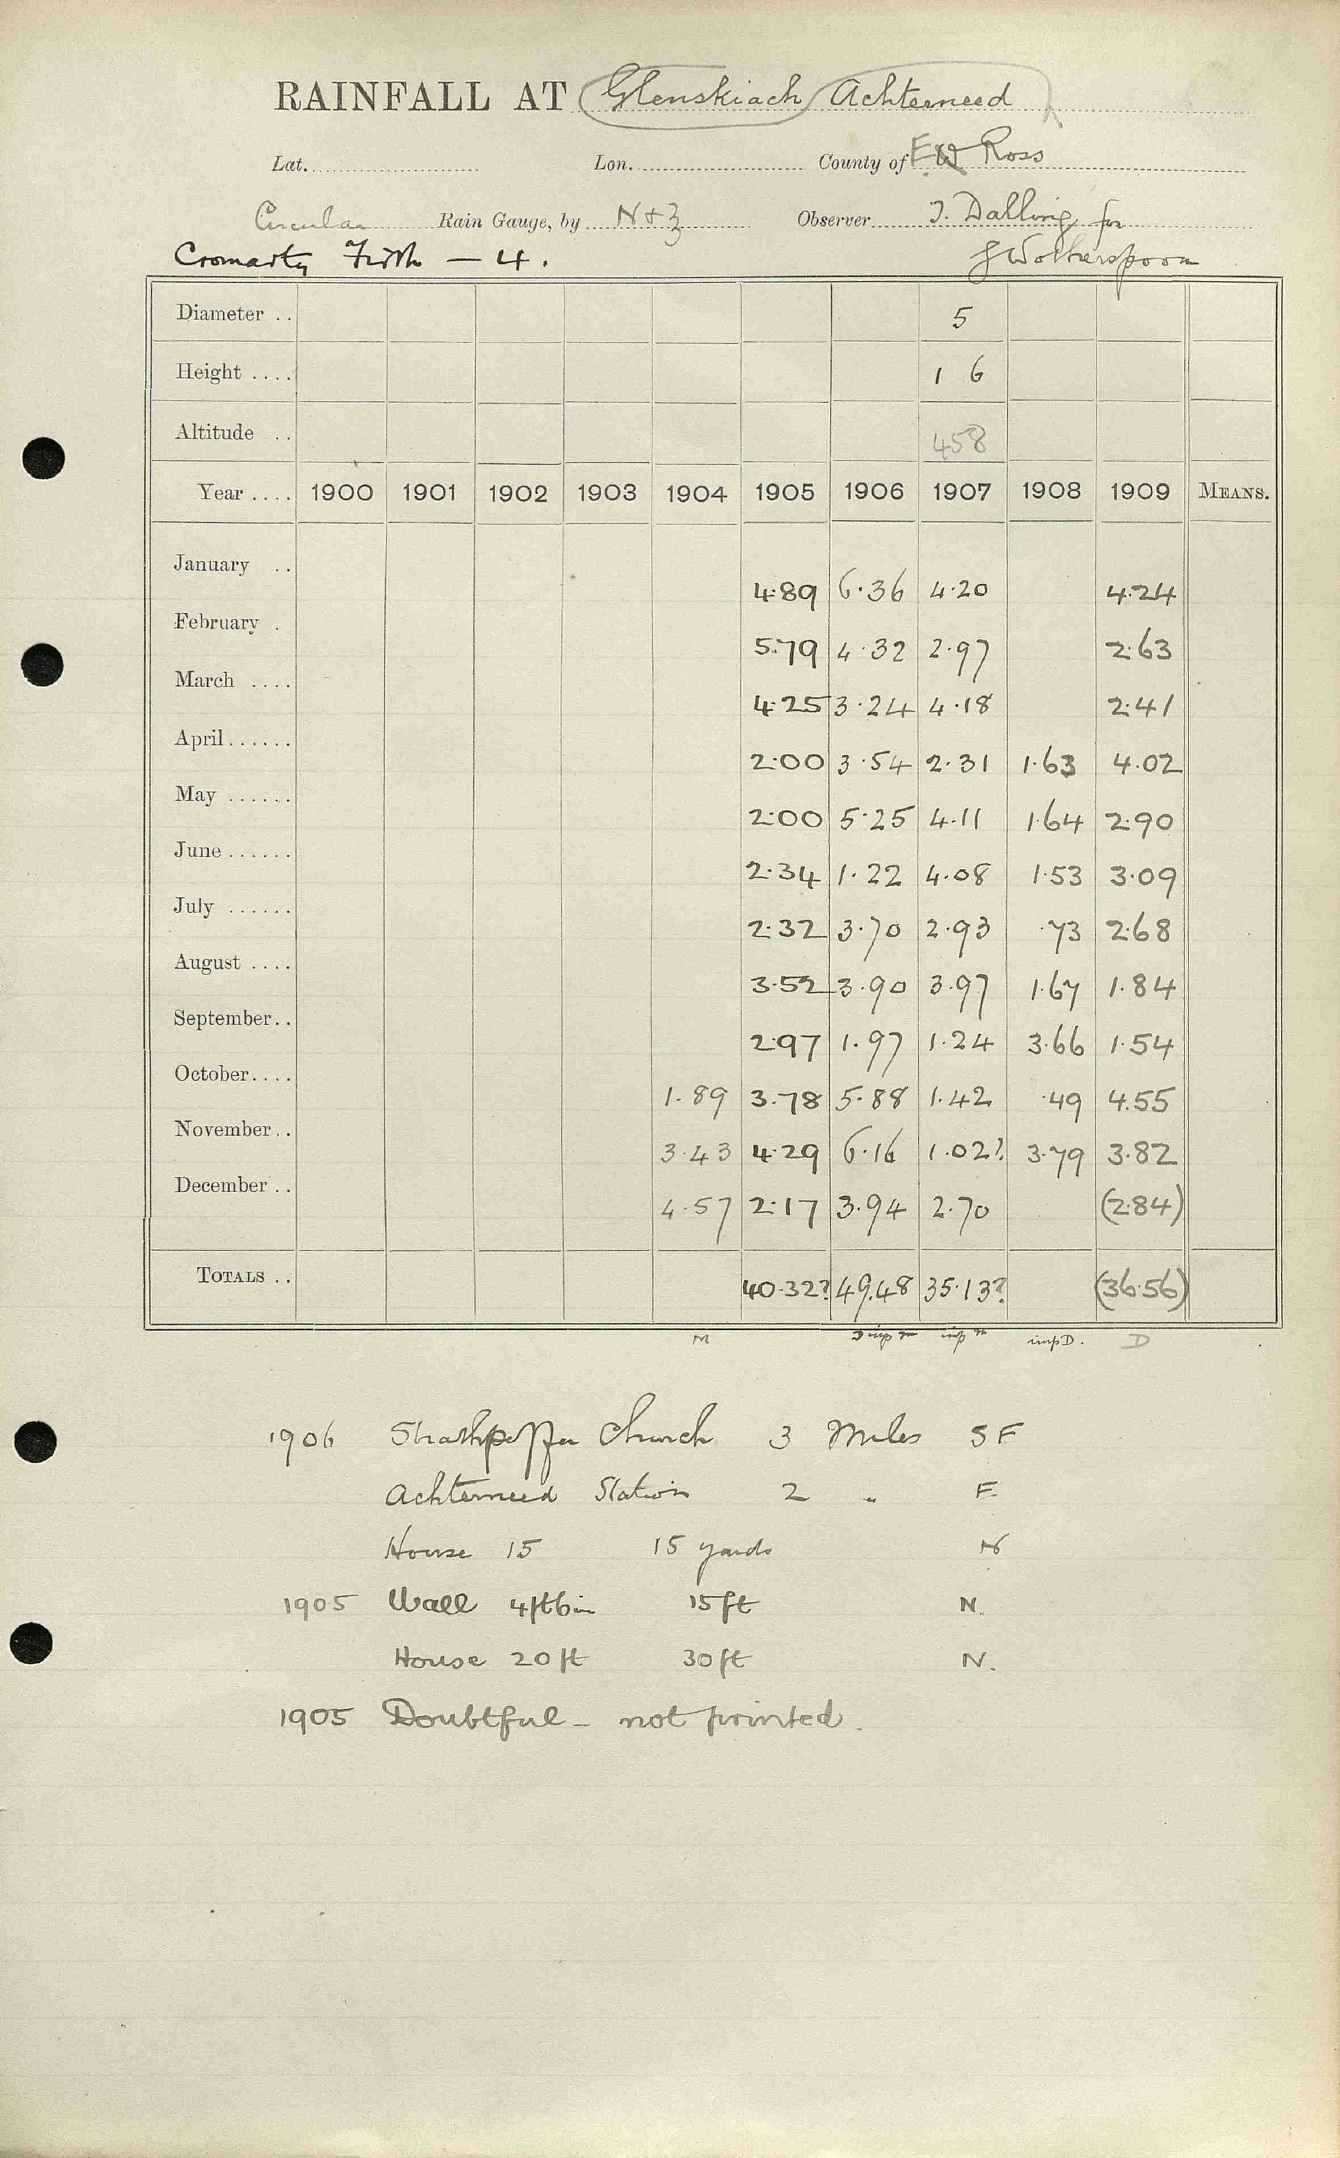 RAINFALL AT Glenskiach Achterneed
Lat. Lon. County of E W Ross
Circular Rain Gauge, by N + Z Observer J. Dalling for
Cromarty Firth — 4. J Wotherspoon
Diameter .. 5
Height .... 1 6
Altitude .. 458
Year .... 1900 1901 1902 1903 1904 1905 1906 1907 1908 1909 MEANS.
January .. 4.89 6.36 4.20 4.24
February . 5.79 4.32 2.97 2.63
March .... 4.25 3.24 4.18 2.41
April...... 2.00 3.54 2.31 1.63 4.02
May ...... 2.00 5.25 4.11 1.64 2.90
June ...... 2.34 1.22 4.08 1.53 3.09
July ...... 2.32 3.70 2.93 .73 2.68
August .... 3.52 3.90 3.97 1.67 1.84
September.. 2.97 1.97 1.24 3.66 1.54
October.... 1.89 3.78 5.88 1.42 .49 4.55
November.. 3.43 4.29 6.16 1.02? 3.79 3.82
December .. 4.57 2.17 3.94 2.70 (2.84)
TOTALS .. 40.32? 49.48 35.13? (36.56)
M imp m imp m imp D. D
1906 Strathpeffer Church 3 Miles S E
Achterneed Station 2 " E
House 15 15 yards N
1905 Wall 4ft 6in 15ft N.
House 20ft 30ft N.
1905 Doubtful - not printed.